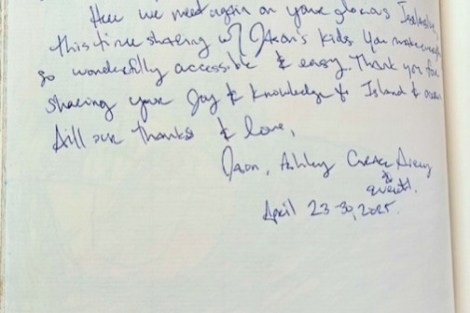 Here we meet again on your glorious Island,
this time sharing w/ Jason's kids. You make
so wonderfully accessible & easy. Thank you for
sharing your Joy & knowledge Island &
our thanks & love,
Jason, Ashley
&
April 23-30, 2025.